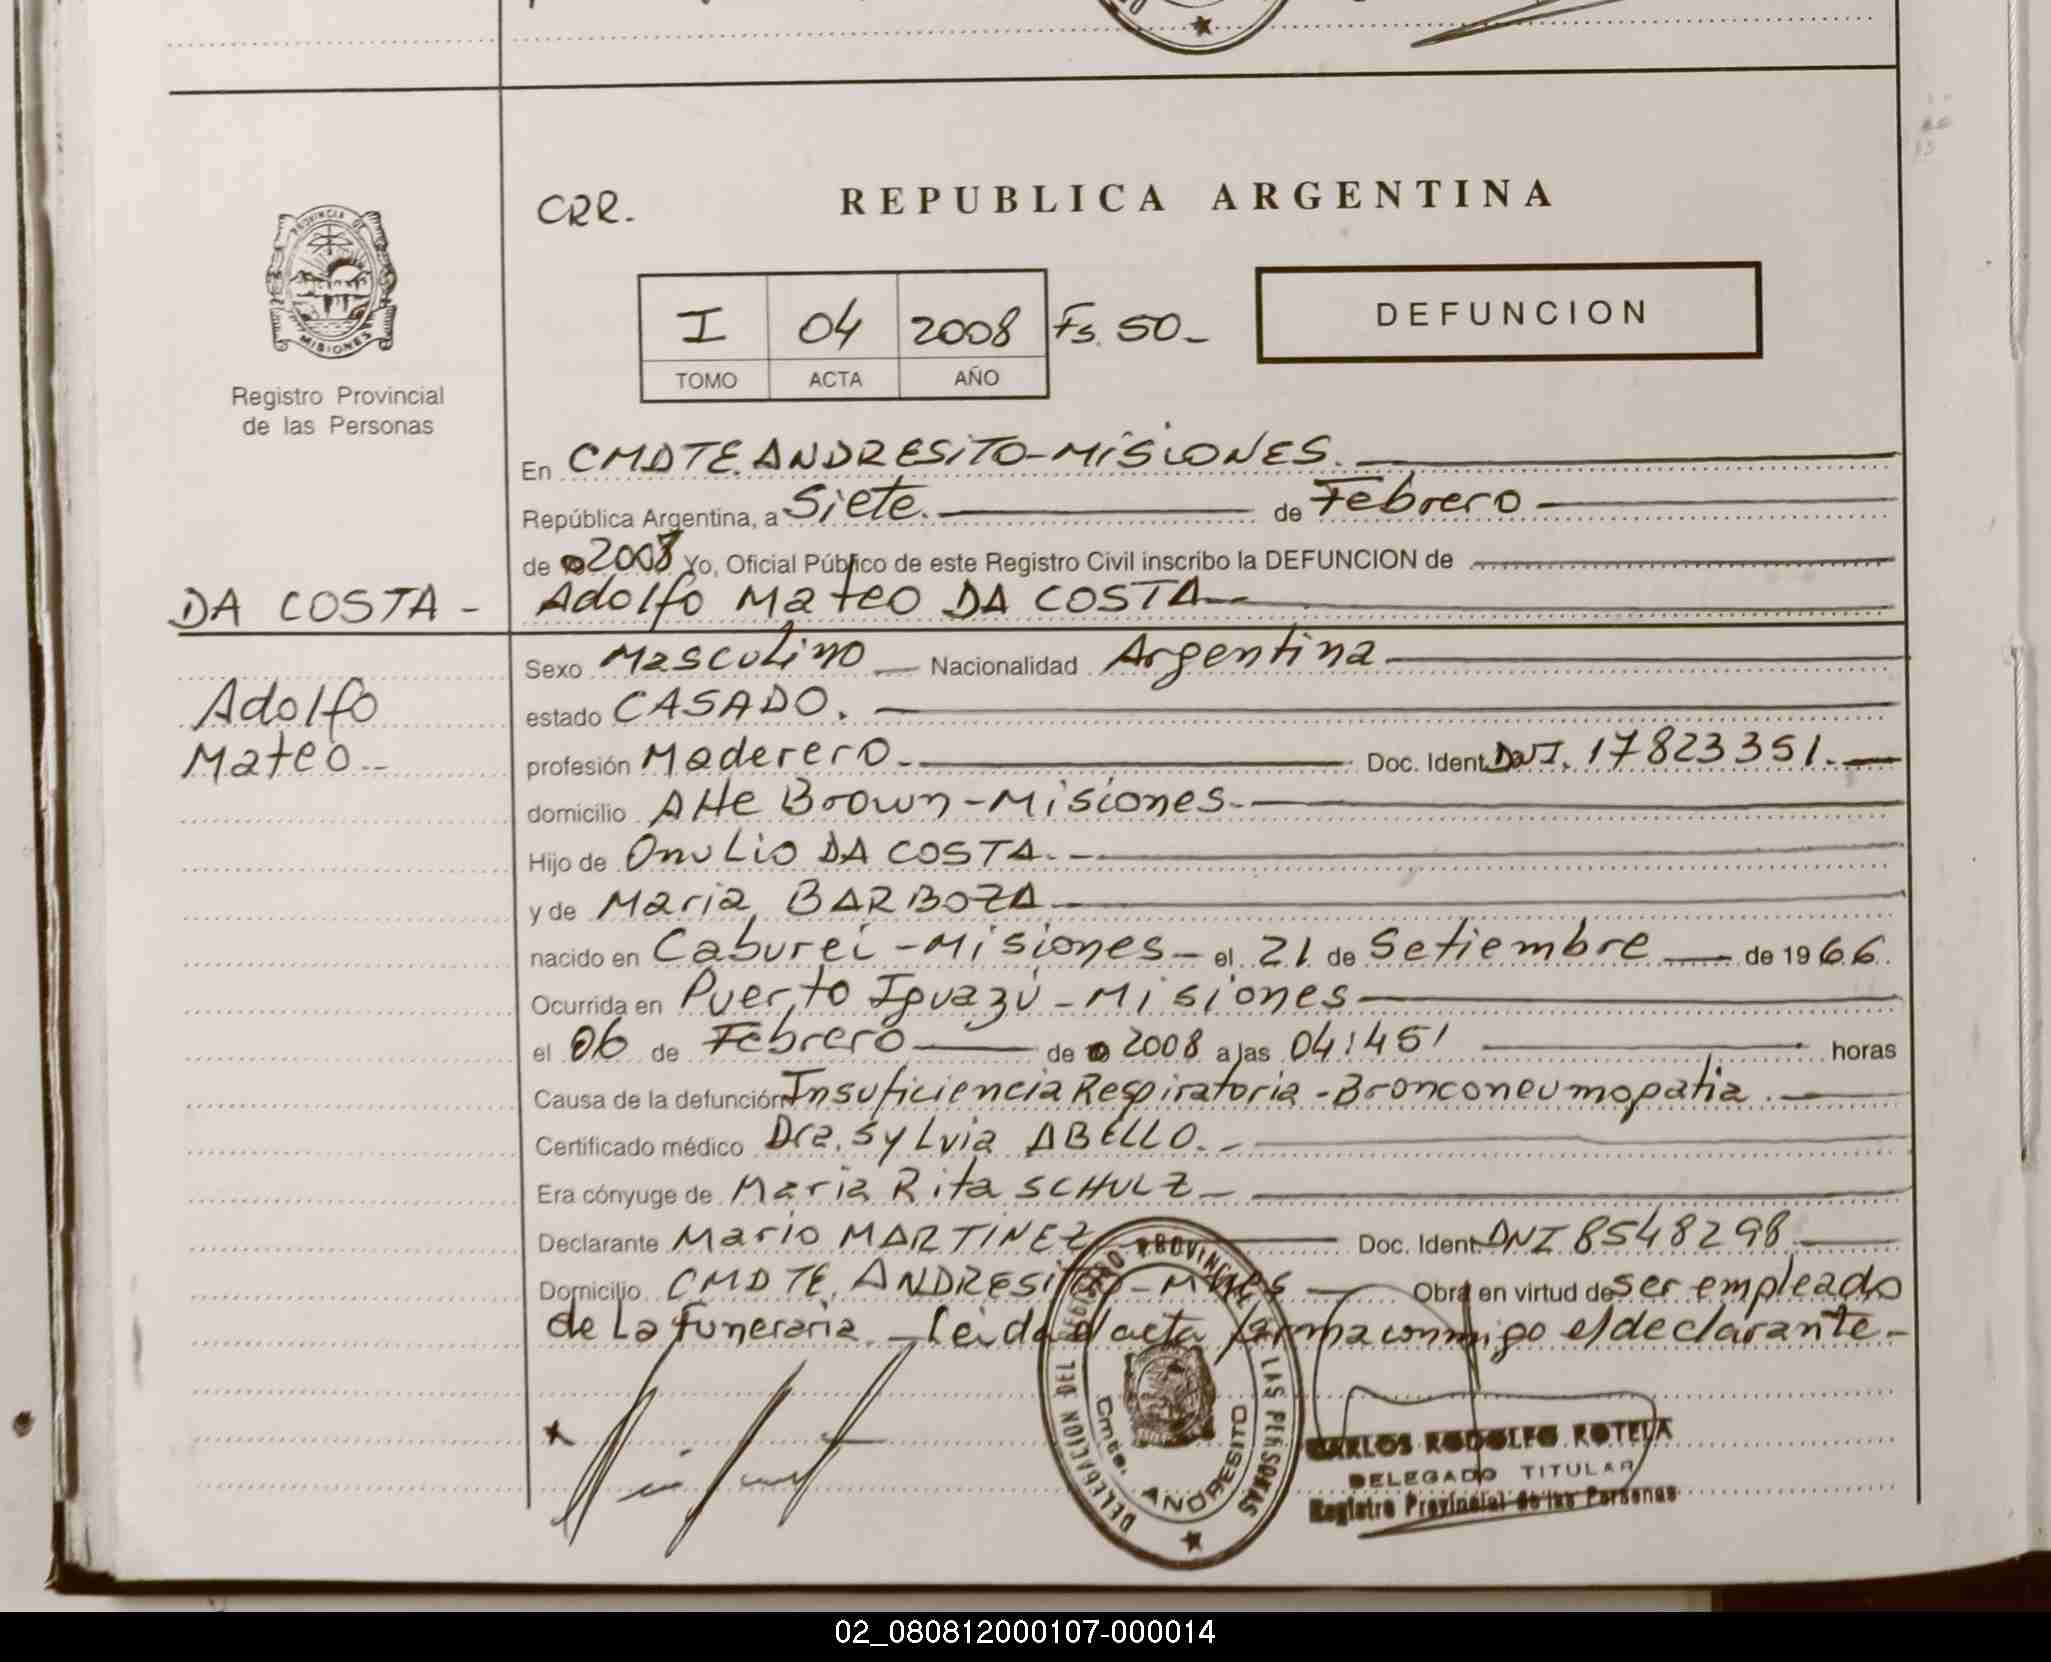 PROVINCIA DE
MISIONES
Registro Provincial
de las Personas
CRR.
REPUBLICA ARGENTINA
I 04 2008 Fs. 50-
TOMO ACTA AÑO
DEFUNCION
En CMDTE. ANDRESITO-MISIONES.
República Argentina, a Siete. de Febrero
de 2008 Yo, Oficial Público de este Registro Civil inscribo la DEFUNCION de
DA COSTA - Adolfo Mateo DA COSTA
Sexo Masculino Nacionalidad Argentina
Adolfo estado CASADO.
Mateo - profesión Maderero. Doc. Ident. DNI. 17823351.
domicilio Alte Brown-Misiones.
Hijo de Onulio DA COSTA.
y de Maria BARBOZA
nacido en Caburei-Misiones - el 21 de Setiembre de 1966.
Ocurrida en Puerto Iguazú-Misiones
el 06 de Febrero de 2008 a las 04:45' horas
Causa de la defunción Insuficiencia Respiratoria-Bronconeumopatia.
Certificado médico Dra. Sylvia ABELLO.
Era cónyuge de Maria Rita SCHULZ
Declarante Mario MARTINEZ Doc. Ident. DNI 8548298
Domicilio CMDTE. ANDRESITO-Mnes Obra en virtud de ser empleado
de la Funeraria. - leida el acta firma conmigo el declarante.-
DELEGACION DEL REGISTRO PROVINCIAL DE LAS PERSONAS
Cmte. ANDRESITO
CARLOS RODOLFO ROTELA
DELEGADO TITULAR
Registro Provincial de las Personas
02_080812000107-000014